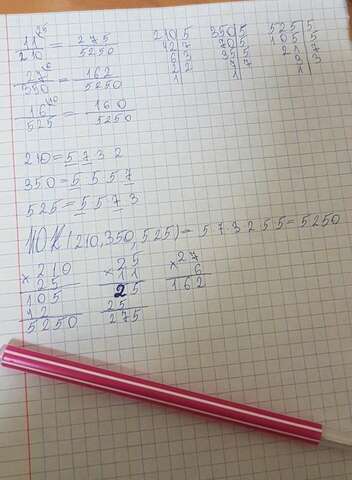 11²⁵/210 = 275/5250
27⁶/530 = 162/5250
16¹⁰/525 = 160/5250
210 5
42 7
6 3
2 2
1
350 5
70 5
35 5
7 7
1
525 | 5
105 | 5
21 | 7
3 | 3
1
210 = 5 7 3 2
350 = 5 5 5 7
525 = 5 5 7 3
НОК(210,350,525) = 5 7·3 2 5 5 = 5250
×210 ×25 ×27
25 11 6
105 25 162
42 25
5250 275